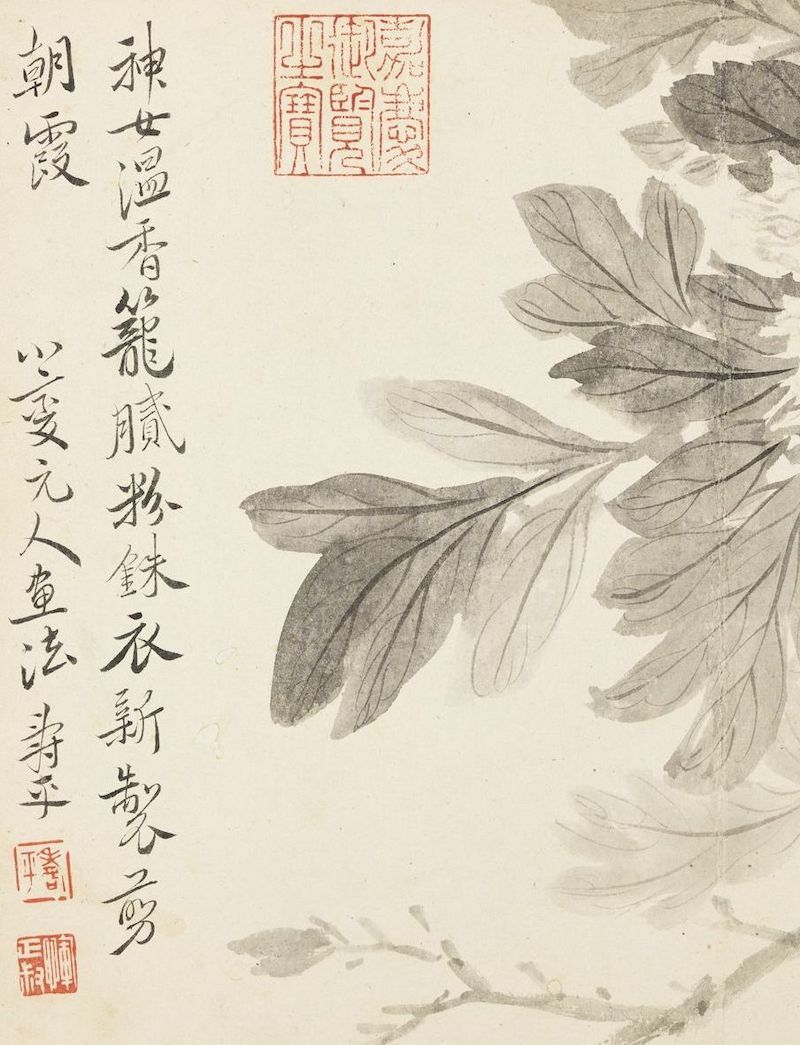 嘉慶
御覽
之寶
神女溫香籠膩粉銖衣新製剪
朝霞
小變元人畫法 壽平
壽平
惲
正叔